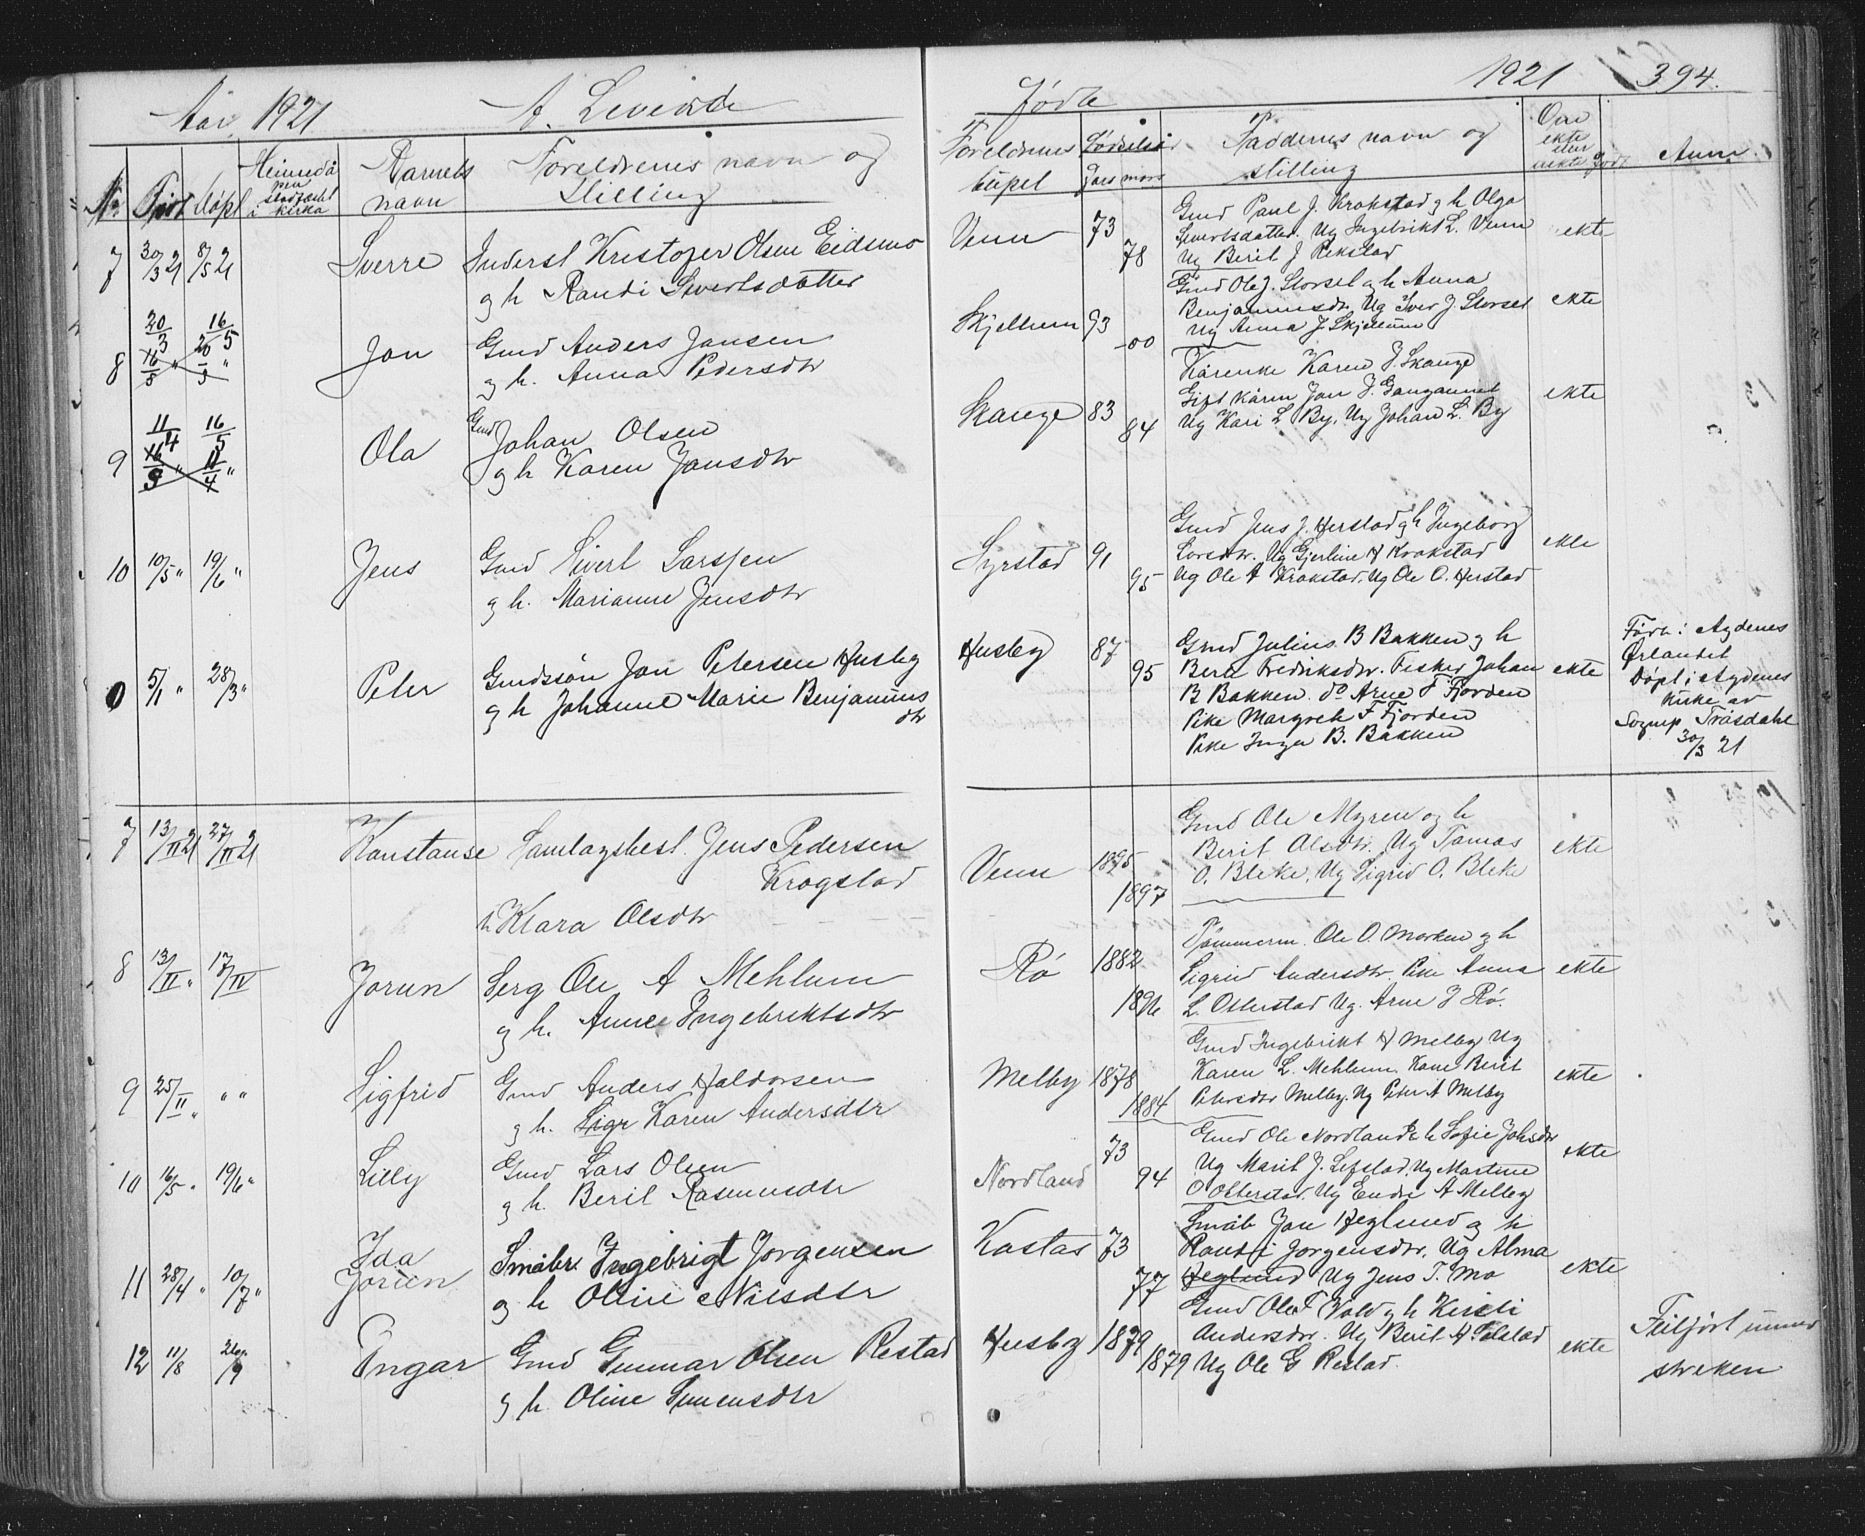 Aar 1921 A. Levende
Fødte 1921 394.
Nr. Født Døpt Heimedå
Barnets navn
Foreldrenes navn og Stilling
Foreldrenes bupel
Fødselsår
Fars mors
Faddernes navn og stilling
Om ekte eller uekte født
Anm.
7 30/3 21 8/5 21 Sverre Inderst Kristofer Olsen Eidsmo
og h Randi Sivertsdatter
Venn 73 78 ekte
Gmd Paul J. Krokstad og h Olga
Sivertsdatter. Ug Ingebrikt L. Venn
Ug Berit J Rekstad
8 20/3 16/5 Jon Gmd Anders Jansen
16/5 " 20/3 "
og h. Anna Pedersdtr
Skjellum 93 -00 ekte
Gmd Ole J. Storset og h Anna
Benjaminsdr. Ug Iver J Storset
Ug Anna J Skjellum
9 11/4 16/5 Ola Gmd Johan Olsen
16/5 " 11/4 "
og h Karen Jonsdtr
Skauge 83 84 ekte
Kårenke Karen J. Skauge
Gift kårm Jon J. Gangaunet
Ug Kari L By, Ug Johan L. By
10 10/5 " 19/6 " Jens Gmd Sivert Larssen
og h. Marianne Jensdtr
Syrstad 91 95 ekte
Gmd Jens J. Herstad og h Ingeborg
Larsdtr. Ug Gjertine A Krokstad
Ug Ole A Krokstad, Ug Ole O. Herstad
0 5/1 " 28/3 " Peter Gmdssøn Jon Petersen Husby
og h Johanne Marie Benjamins
dtr
Husby 87 95 ekte
Gmd Julius B Bakken og h
Berit Fredriksdtr. Fisker Johan
B Bakken. do Arne F Fjorden
Pike Margrete F Fjorden
Pike Inga B. Bakken
Født i Agdenes
Ørlandet
Døpt i Agdenes
Kirke av
Sognep. Tråsdahl
30/3 21
7 13/II 21 27/II 21 Konstanse Samlagsbest. Jens Pedersen
Krogstad
h Klara Olsdtr
Venn 1895 1897 ekte
Gmd Ole Myren og h
Berit Olsdtr. Ug Tomas
O. Bleke, Ug Sigrid O. Bleke
8 13/II " 17/IV Jorun Serg Ole A Mehlum
og h. Anne Ingebriktsdtr
Rø 1882 1896 ekte
Tømmerm. Ole O. Morken og h
Sigrid Andersdtr. Pike Anna
L. Otterstad Ug. Arne J Rø.
9 25/II " " " Sigfrid Gmd Anders Haldorsen
og h. Sigr Karen Andersdtr
Melby 1878 1884 ekte
Gmd Ingebrikt A Melby Ug
Karen L. Mehlum. Kone Berit
Petersdtr Melby. Ug Peter A Melby
10 16/5 " 19/6 " Lilly Gmd Lars Olsen
og h. Berit Rasmusdtr
Nordland 73 94 ekte
Gmd Ole Nordland & h Sofie Johsdtr
Ug Marit J. Sefstad, Ug Martine
O Otterstad. Ug Endre A Melby
11 28/4 " 10/7 " Ida Jorun Småbr. Ingebrigt Jørgensen
og h Oline Nilsdtr
Kastas 73 77 ekte
Småb Jon Heglund og h
Randi Jørgensdtr, Ug Alma
Heglund Ug Jens T. Mo
12 11/8 Engar Gmd Gunnar Olsen Restad
og h. Oline Simensdtr
Husby 1879 1879 ekte
Gmd Ole T Vold og h Kirsti
Andersdtr. Ug Berit A Tolstad
Ug Ole G Restad.
Feilført under
streken